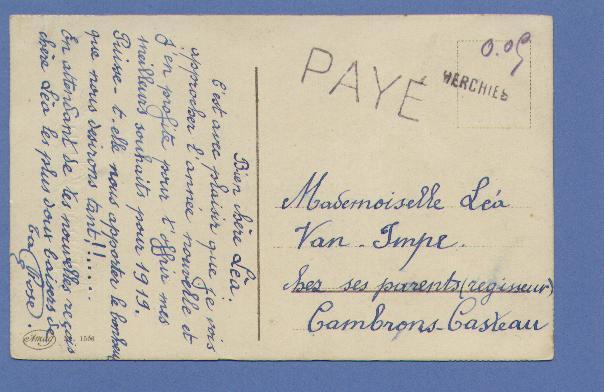 Bien chère Léa.
C'est avec plaisir que je vois
approcher l'année nouvelle et
j'en profite pour t'offrir mes
meilleurs souhaits pour 1919.
Puisse-t-elle nous apporter le bonheur
que nous désirons tant!!.....
En attendant de tes nouvelles reçois
chère Léa les plus doux baisers de
ta Rose
PAYÉ
HERCHIES
0.05
Mademoiselle Léa
Van-Impe.
chez ses parents (régisseur)
Cambrons-Casteau
Amag